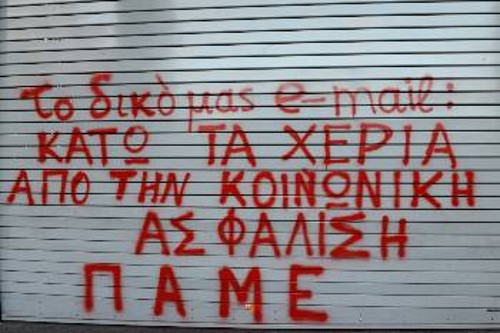 το δικό μας e-mail:
ΚΑΤΩ ΤΑ ΧΕΡΙΑ
ΑΠΟ ΤΗΝ ΚΟΙΝΩΝΙΚΗ
ΑΣΦΑΛΙΣΗ
ΠΑΜΕ